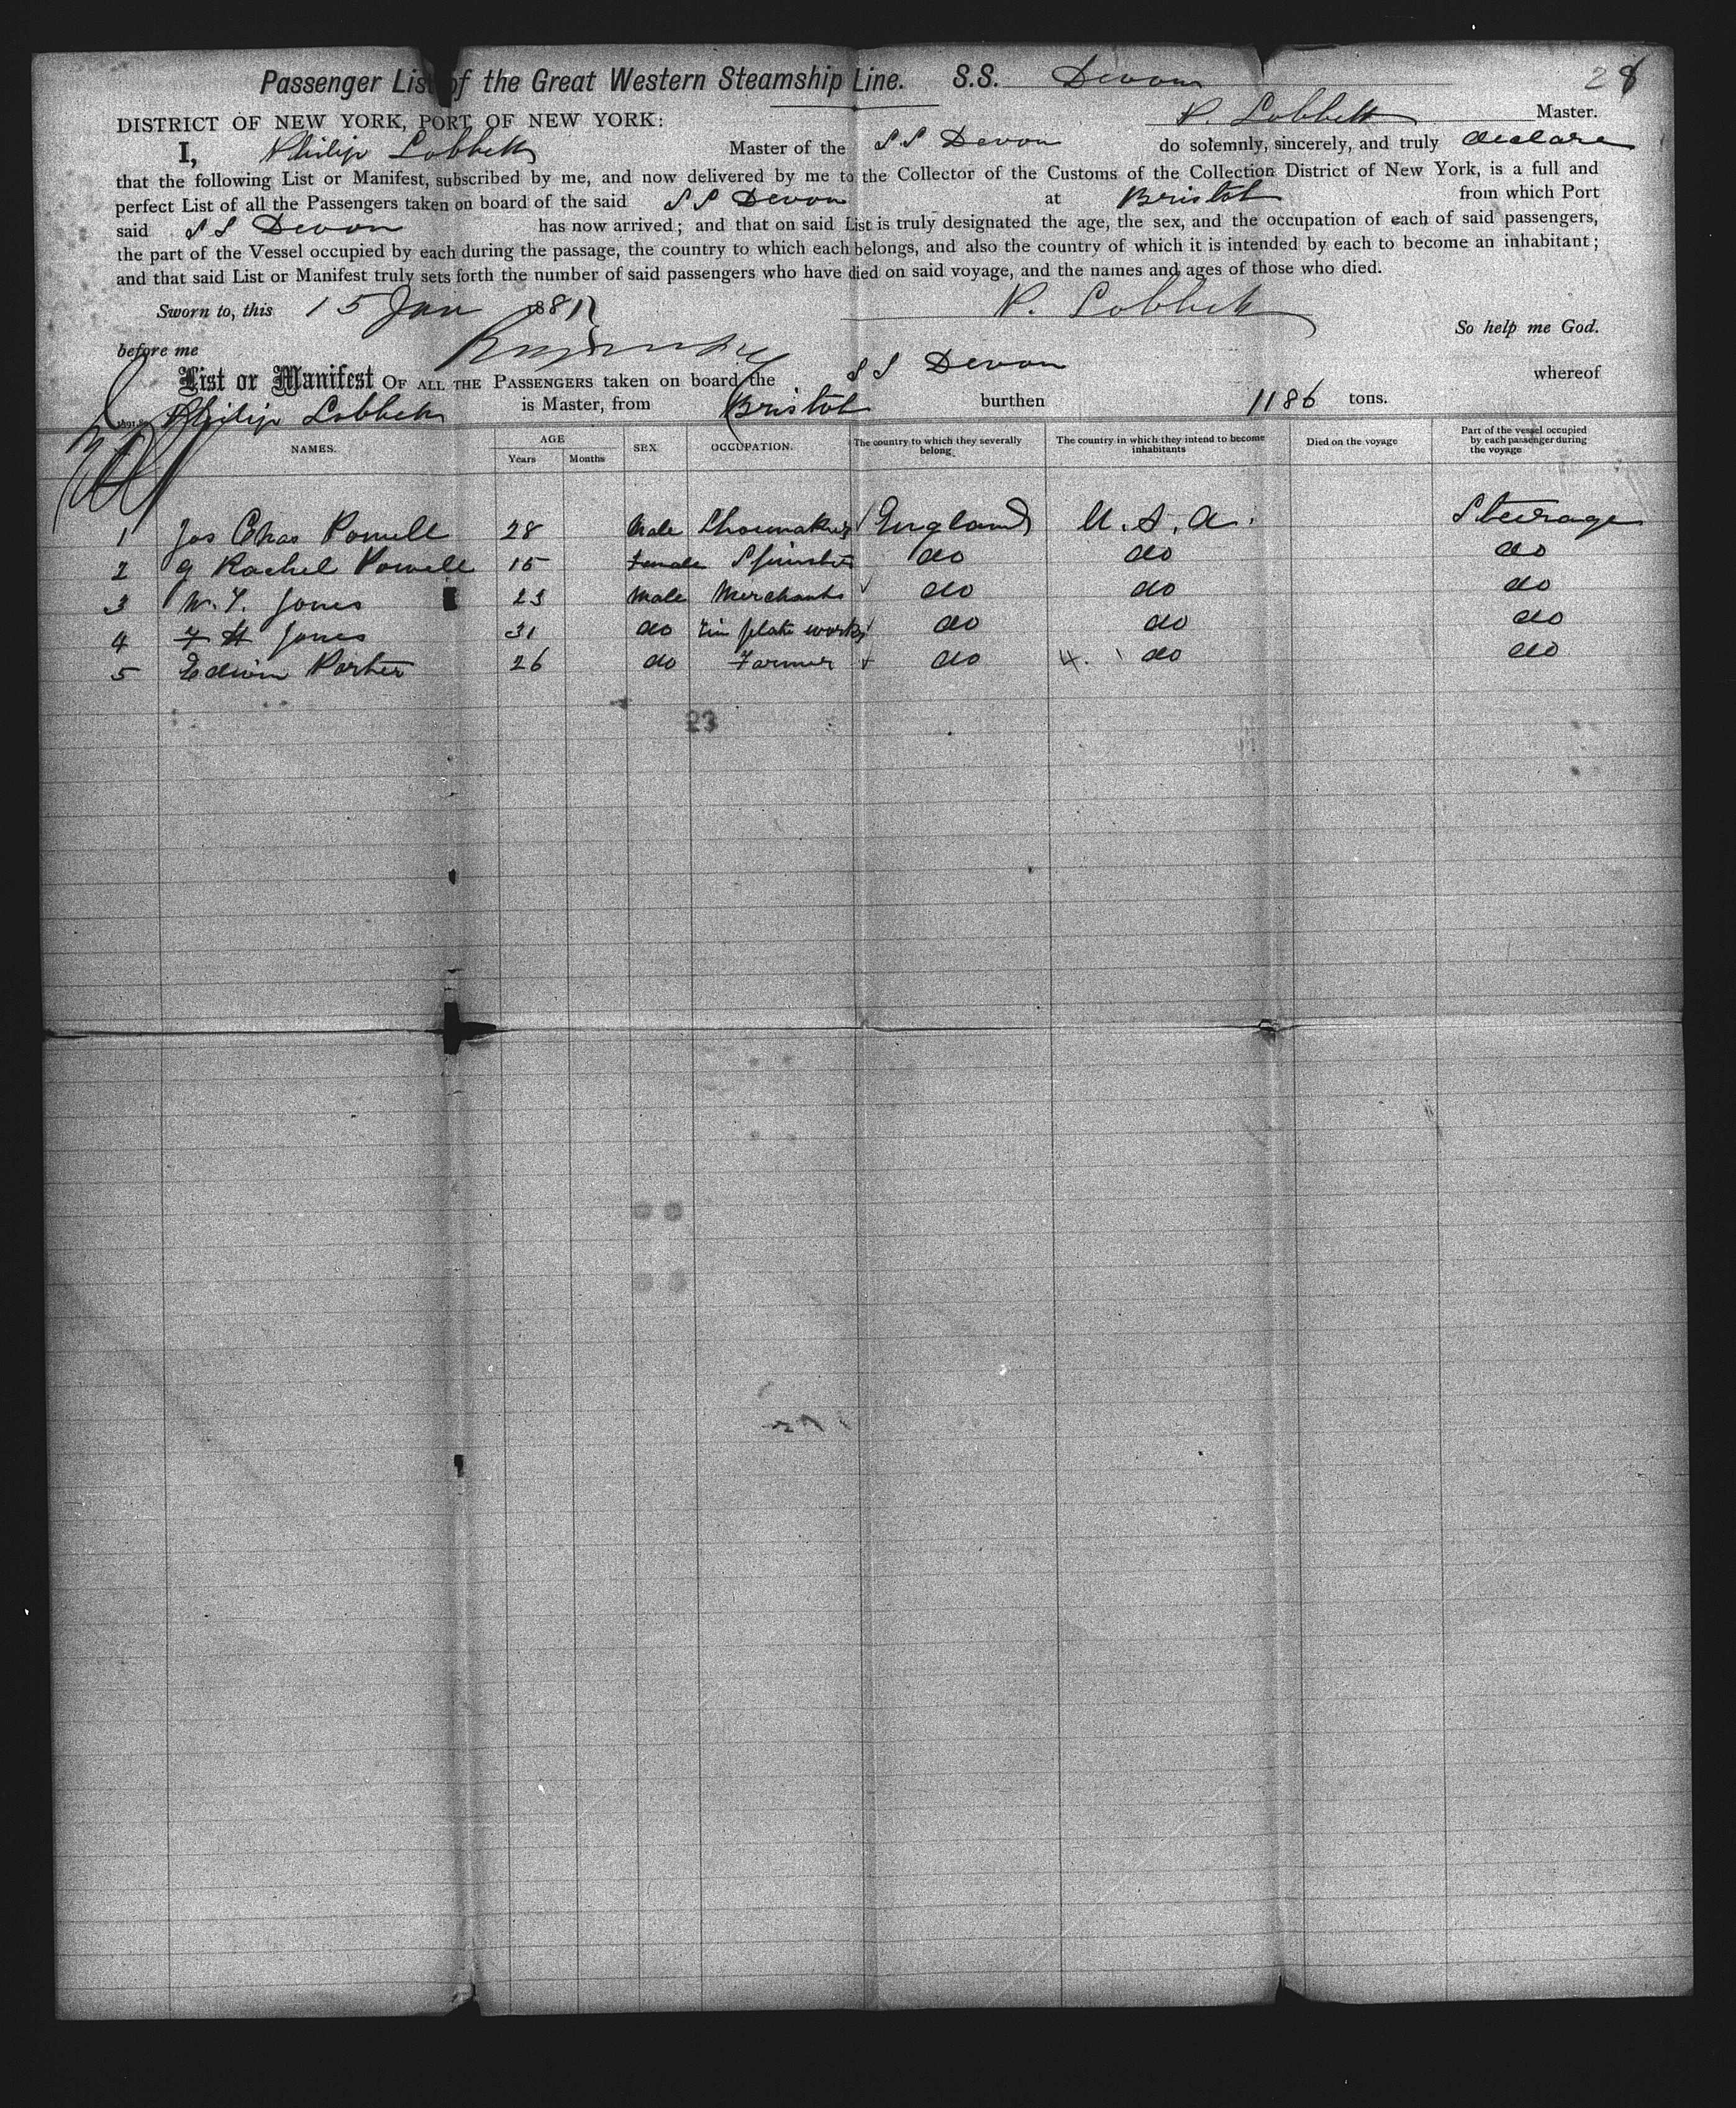 Passenger List of the Great Western Steamship Line. S.S. Devon 28
P. Lobbett Master.
DISTRICT OF NEW YORK, PORT OF NEW YORK:
I, Philip Lobbett Master of the S S Devon do solemnly, sincerely, and truly declare
that the following List or Manifest, subscribed by me, and now delivered by me to the Collector of the Customs of the Collection District of New York, is a full and
perfect List of all the Passengers taken on board of the said S S Devon at Bristol from which Port
said S S Devon has now arrived; and that on said List is truly designated the age, the sex, and the occupation of each of said passengers,
the part of the Vessel occupied by each during the passage, the country to which each belongs, and also the country of which it is intended by each to become an inhabitant;
and that said List or Manifest truly sets forth the number of said passengers who have died on said voyage, and the names and ages of those who died.
Sworn to, this 15 Jan 188 P. Lobbett
So help me God.
before me
List or Manifest OF ALL THE PASSENGERS taken on board the S S Devon whereof
Philip Lobbett is Master, from Bristol burthen 1186 tons.
NAMES. AGE Years Months SEX OCCUPATION. The country to which they severally belong. The country in which they intend to become inhabitants Died on the voyage Part of the vessel occupied by each passenger during the voyage
1 Jos Chas Powell 28 Male Shoemaker England U.S.A. Steerage
2 Rachel Powell 15 Female Spinster do do do
3 W. Y. Jones 23 Male Merchant do do do
4 F H Jones 31 do Tin plate work do do do
5 Edwin Porter 26 do Farmer do 4. do do
23